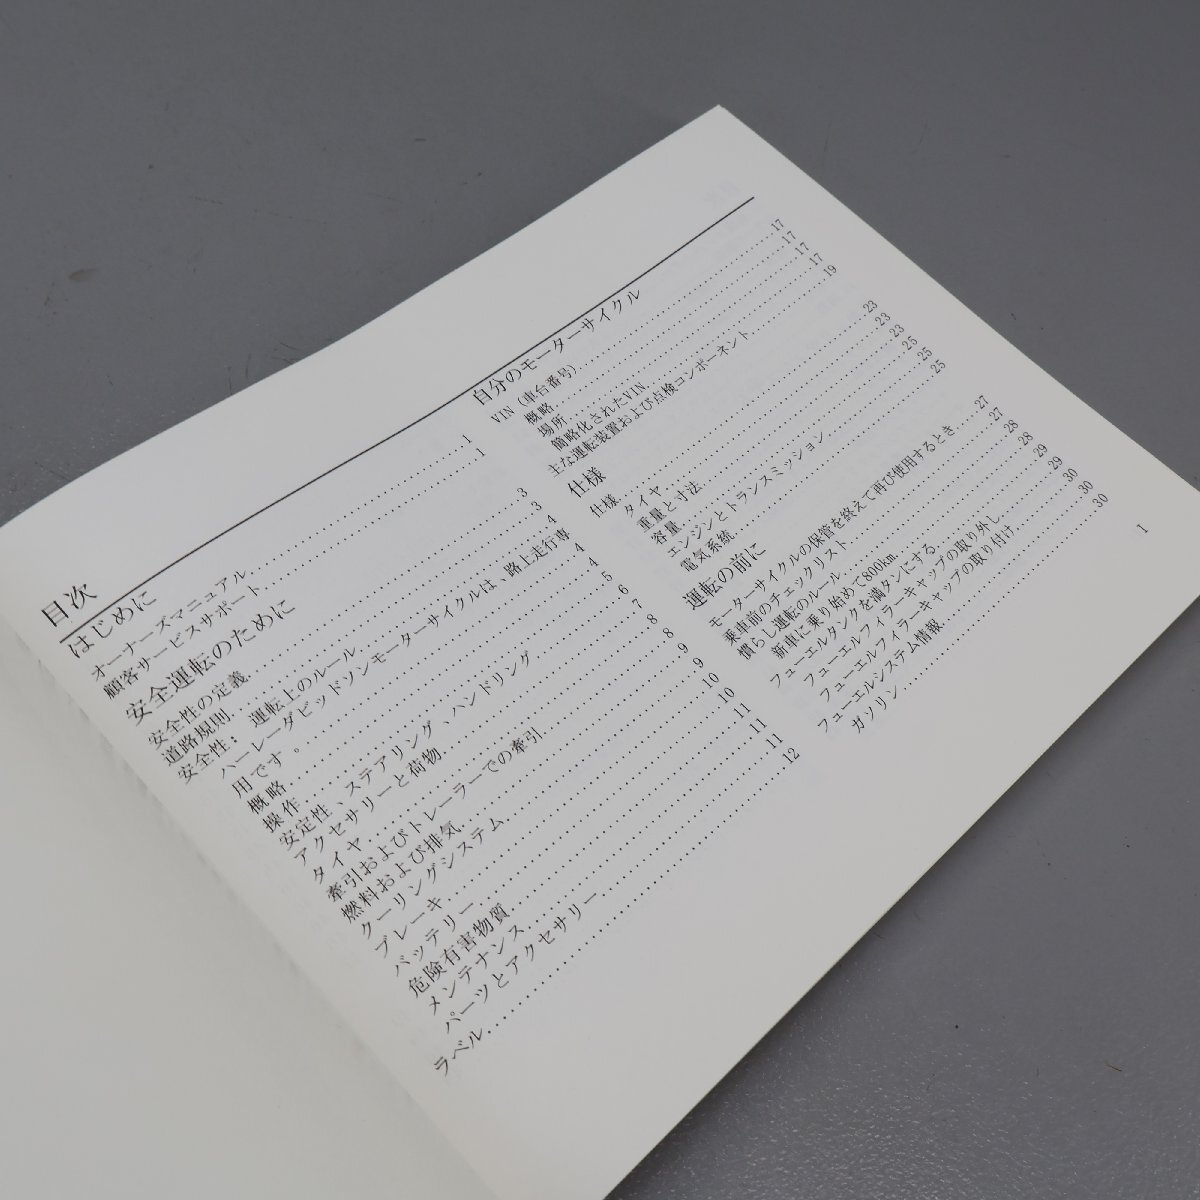 目次
はじめに
オーナーズマニュアル 1
顧客サービスサポート 1
安全運転のために
安全性の定義 3
道路規則 3
安全性： 運転上のルール 4
ハーレーダビッドソンモーターサイクルは、路上走行専
用です。 4
概略 4
操作 5
安定性、ステアリング、ハンドリング 6
アクセサリーと荷物 7
タイヤ 8
牽引およびトレーラーでの牽引 8
燃料および排気 9
クーリングシステム 9
ブレーキ 10
バッテリー 10
危険有害物質 11
メンテナンス 11
パーツとアクセサリー 11
ラベル 12
自分のモーターサイクル
VIN（車台番号） 17
概略 17
場所 17
簡略化されたVIN 17
主な運転装置および点検コンポーネント 19
仕様
仕様 23
タイヤ 23
重量と寸法 23
容量 25
エンジンとトランスミッション 25
電気系統 25
運転の前に
モーターサイクルの保管を終えて再び使用するとき 27
乗車前のチェックリスト 27
慣らし運転のルール 28
新車に乗り始めて800km 28
フューエルタンクを満タンにする 29
フューエルフィラーキャップの取り外し 29
フューエルフィラーキャップの取り付け 30
フューエルシステム情報 30
ガソリン 30
I